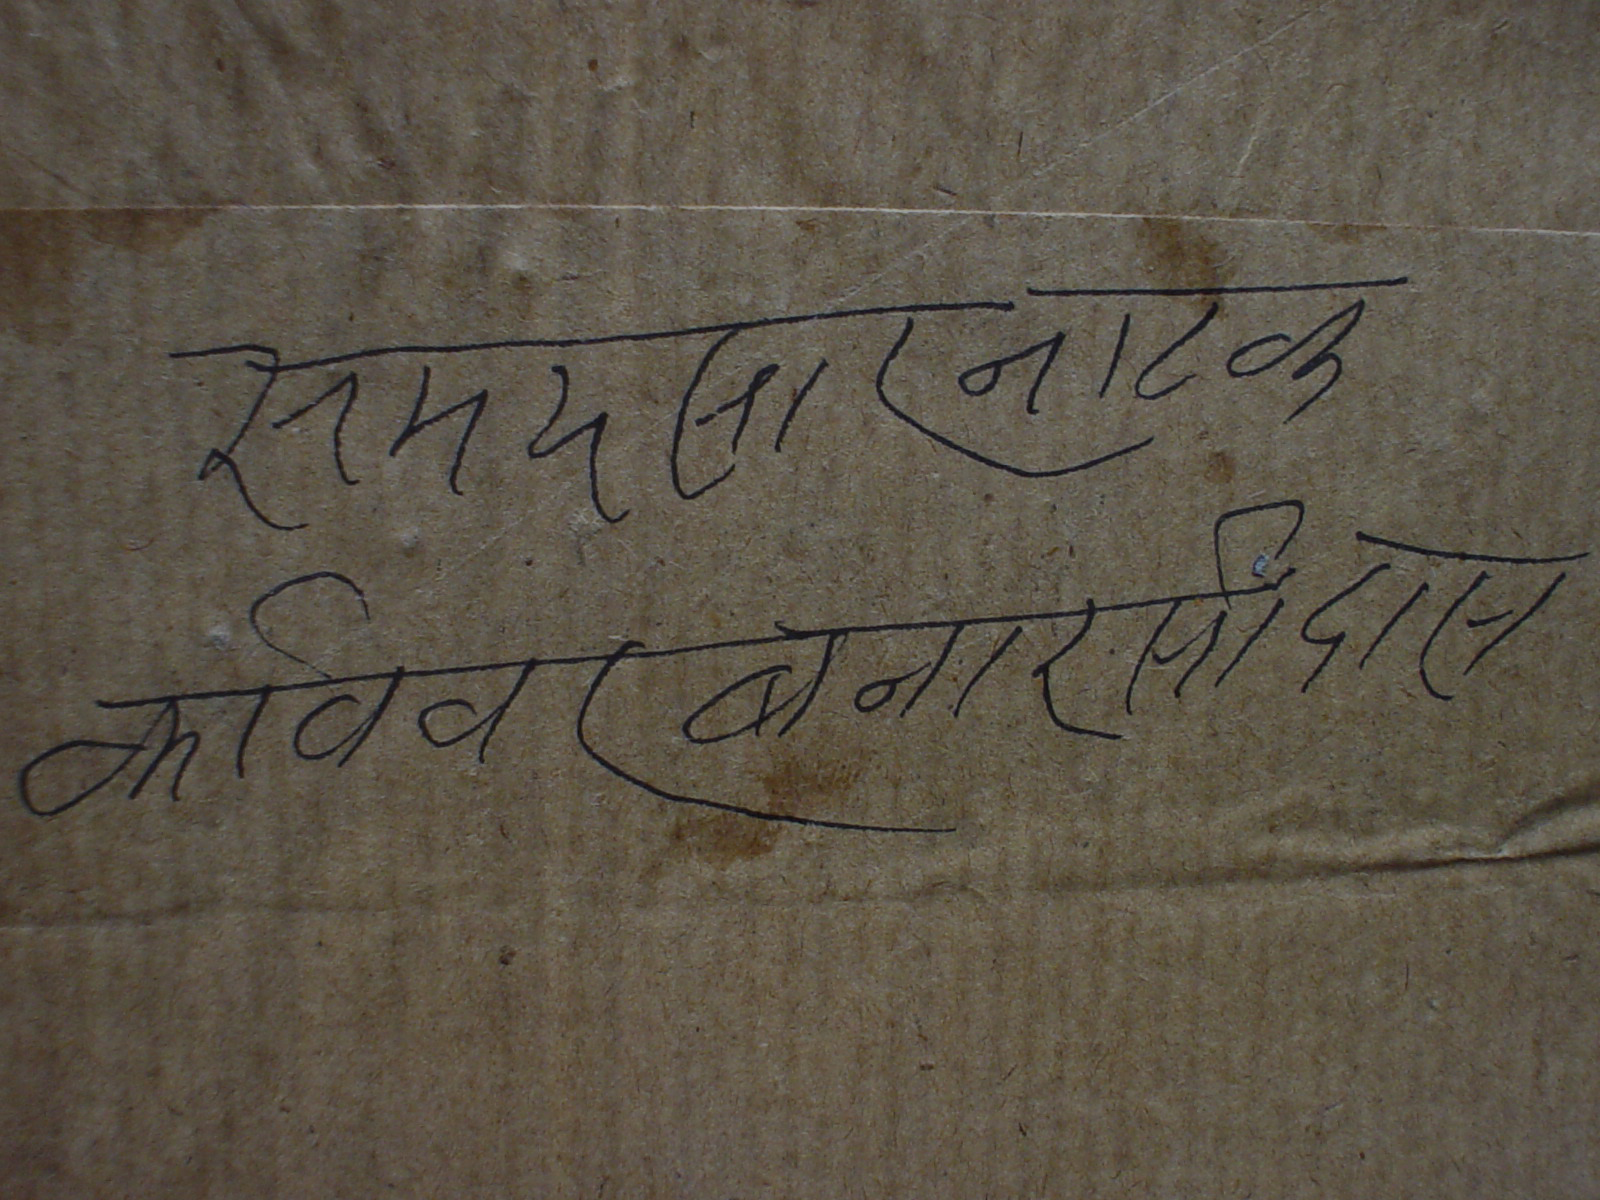 समयसार नाटक
कविवर बनारसीदास